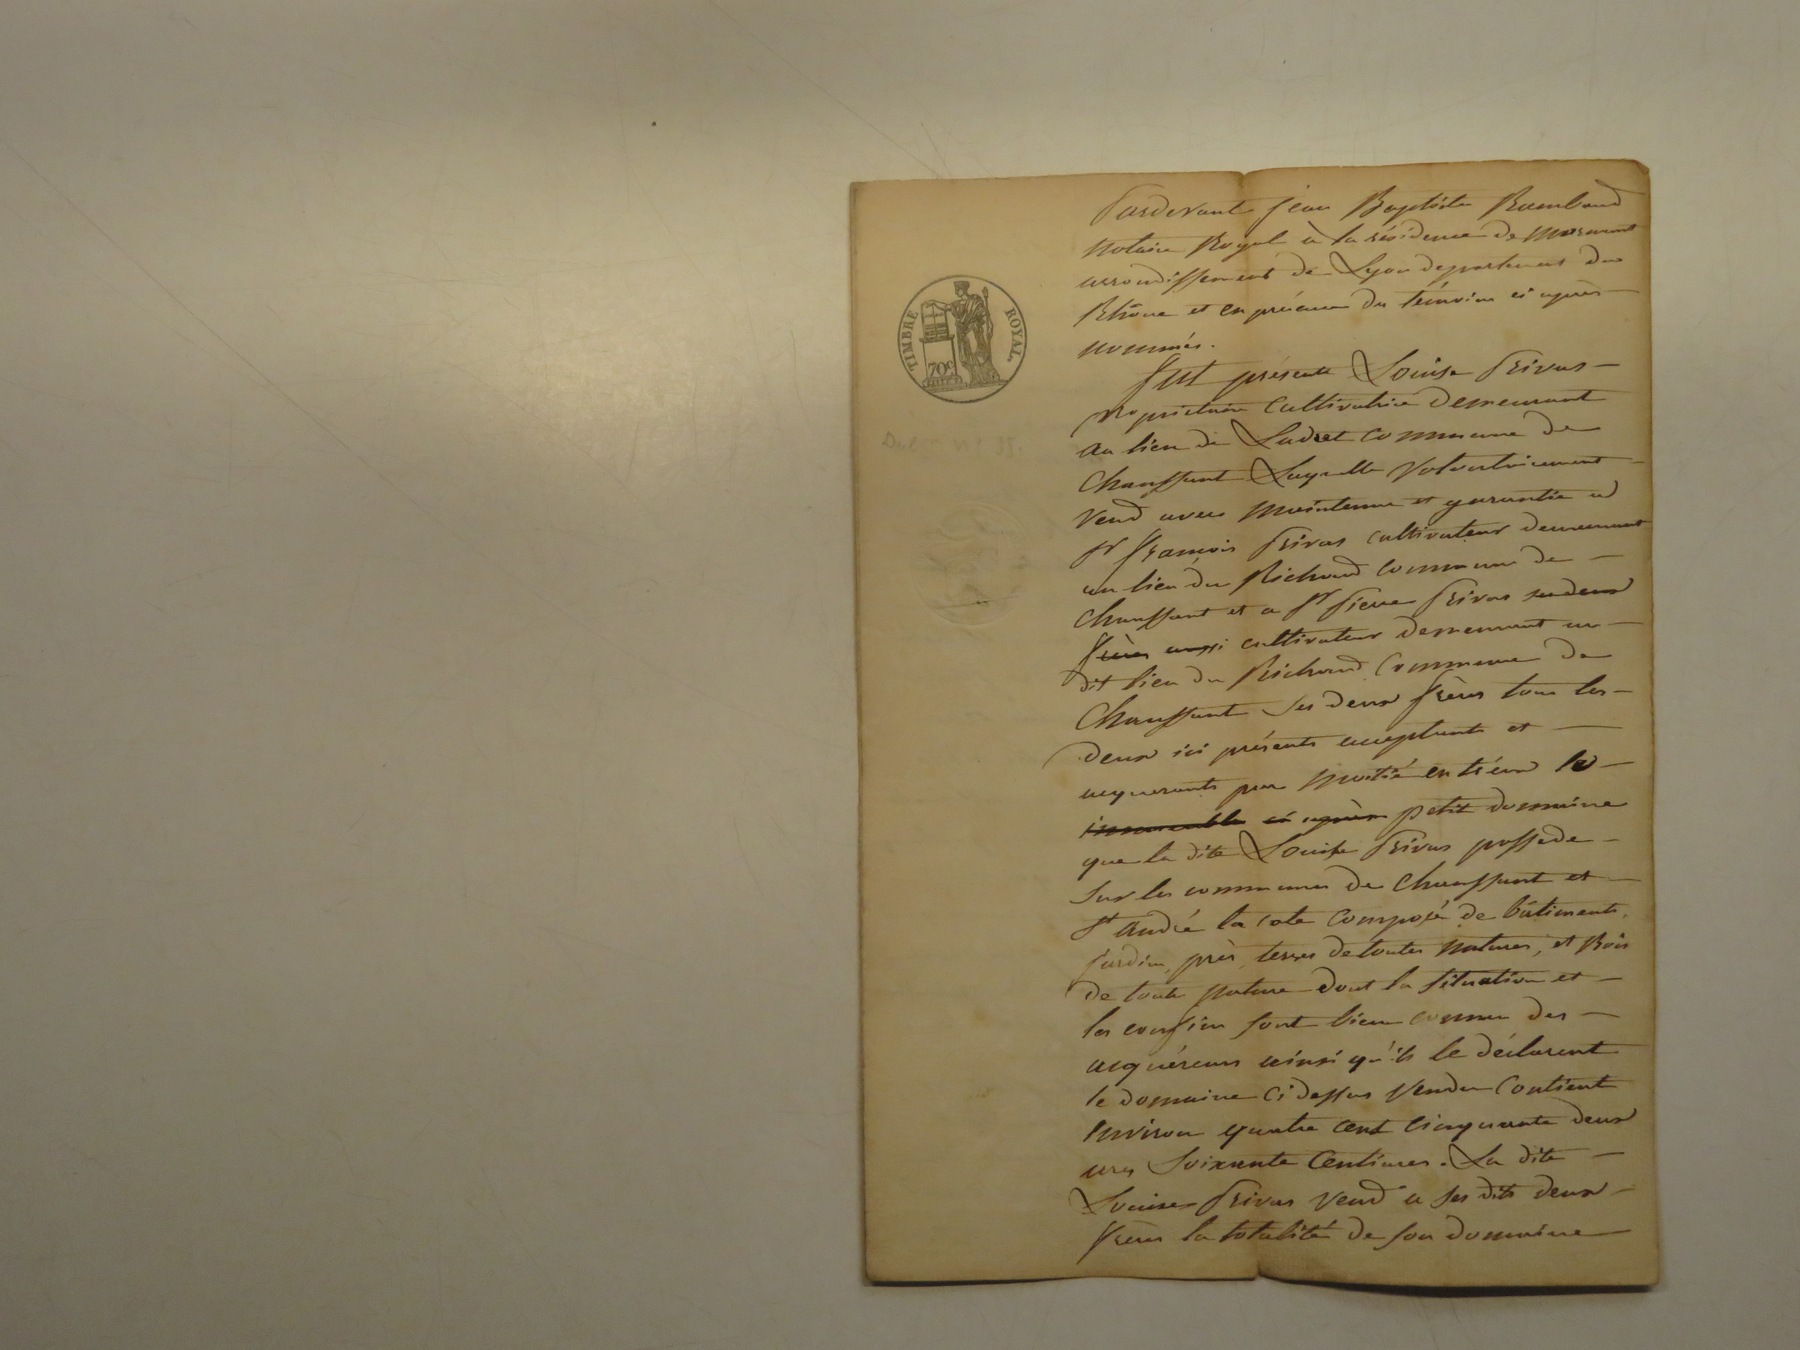 TIMBRE ROYAL
70c
Pardevant jean Baptiste Rambaud
notaire Royal à la résidence de Mornant
arrondissement de Lyon departement du
Rhône et en présence des témoins ci après
nommés.
Fut présente Louise Privas
propriétaire cultivatrice demeurant
au lieu de Ladret commune de
Chaussant Laquelle volontairement
vend avec maintenue et garantie a
sr françois Privas cultivateur demeurant
au lieu du Richoud commune de
Chaussant et a sr pierre Privas ses deux
frères aussi cultivateur demeurant au
dit lieu du Richoud commune de
Chaussant ses deux frères tous les
deux ici présents acceptants et
acquerants par moitié entr'eux le
immeuble ci après petit domaine
que la dite Louise Privas possede
sur les communes de Chaussant et
st andré la cote composé de bâtiments,
jardin, près, terres de toutes natures, et Bois
de toute nature dont la situation et
les confins sont bien connus des
acquéreurs ainsi qu'ils le déclarent
le domaine ci dessus vendu contient
environ quatre cent cinquante deux
ares soixante centiares. La dite
Louise Privas vend a ses dits deux
frères la totalité de son domaine